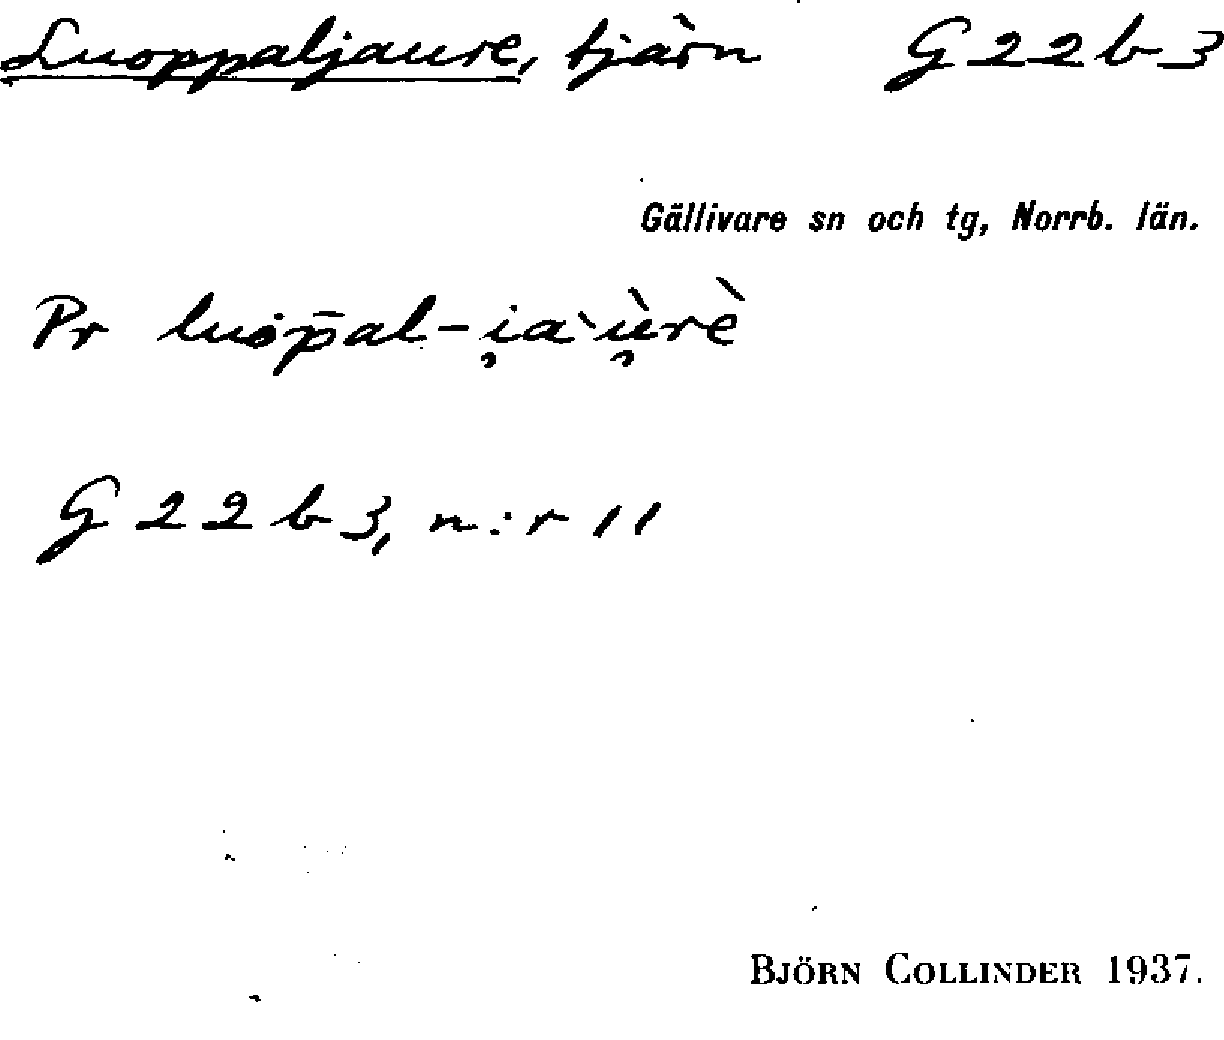 Luoppaljaure, tjärn G 22 b 3
Gällivare sn och tg, Norrb. län.
Pr luȯp̄al-i̯aˋù̯rè
G 22 b 3, n:r 11
BJÖRN COLLINDER 1937.